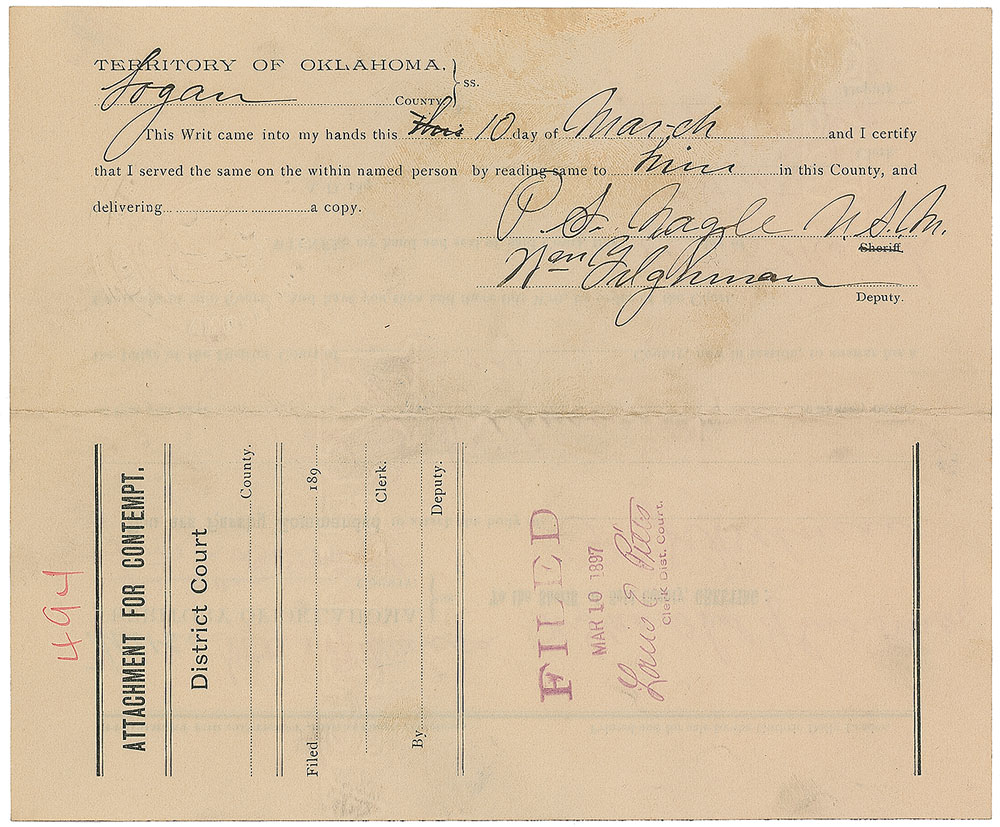 TERRITORY OF OKLAHOMA, } ss.
Logan COUNTY
This Writ came into my hands this this 10 day of March and I certify
that I served the same on the within named person by reading same to him in this County, and
delivering a copy.
P. S. Nagle U.S.M.
Sheriff.
Wm Tilghman
Deputy.
494
ATTACHMENT FOR CONTEMPT.
District Court
County.
Filed 189
Clerk.
By Deputy.
FILED
MAR 10 1897
Louis E
Clerk Dist. Court.